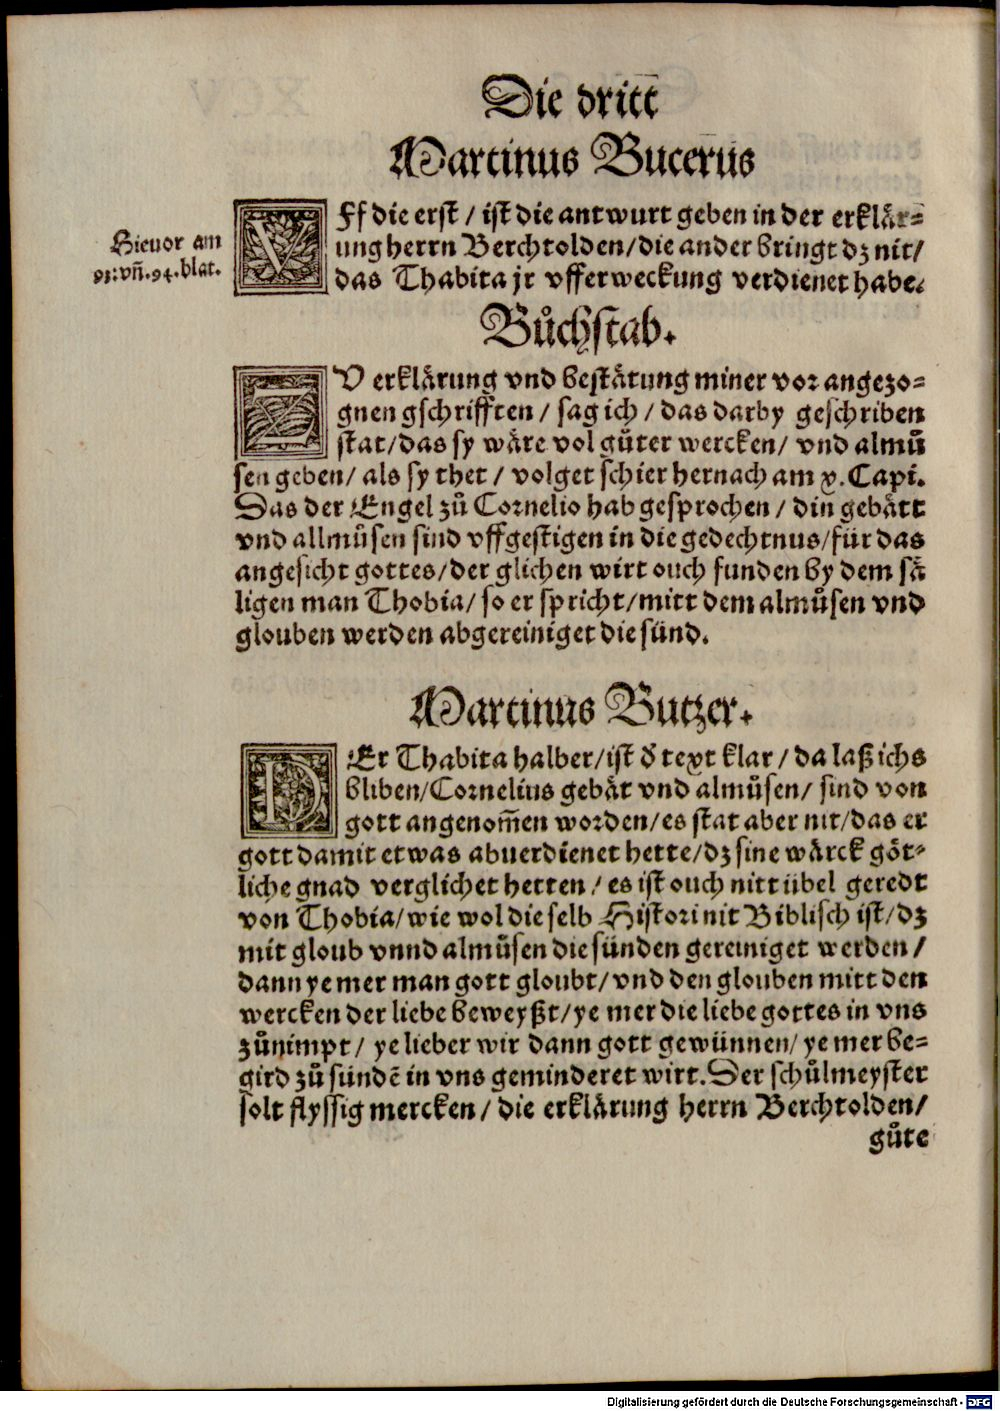 Die dritt
Martinus Bucerus
Hieuor am
93. vñ. 94. blat.
VFf die erst / ist die antwurt geben in der erklär-
ung herrn Berchtolden / die ander bringt dz nit /
das Thabita jr vfferweckung verdienet habe.
Bůchstab.
ZV erklärung vnd bestätung miner vor angezo-
gnen gschrifften / sag ich / das darby geschriben
stat / das sy wäre vol gůter wercken / vnd almů
sen geben / als sy thet / volget schier hernach am x. Capi.
Das der Engel zů Cornelio hab gesprochen / din gebätt
vnd allmůsen sind vffgestigen in die gedechtnus / für das
angesicht gottes / der glichen wirt ouch funden by dem sä
ligen man Thobia / so er spricht / mitt dem almůsen vnd
glouben werden abgereiniget die sünd.
Martinus Butzer.
DEr Thabita halber / ist d̕ text klar / da laß ichs
bliben / Cornelius gebät vnd almůsen / sind von
gott angenom̄en worden / es stat aber nit / das er
gott damit etwas abuerdienet hette / dz sine wärck göt-
liche gnad verglichet hetten / es ist ouch nitt übel geredt
von Thobia / wie wol die selb Histori nit Biblisch ist / dz
mit gloub vnnd almůsen die sünden gereiniget werden /
dann ye mer man gott gloubt / vnd den glouben mitt den
wercken der liebe beweyßt / ye mer die liebe gottes in vns
zůnimpt / ye lieber wir dann gott gewünnen / ye mer be-
gird zů sündē in vns geminderet wirt. Der schůlmeyster
solt flyssig mercken / die erklärung herrn Berchtolden /
gůte
Digitalisierung gefördert durch die Deutsche Forschungsgemeinschaft - DFG